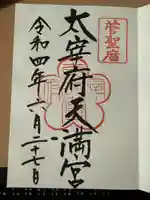 菅聖廟
太宰府天満宮
令和四年六月二十七日